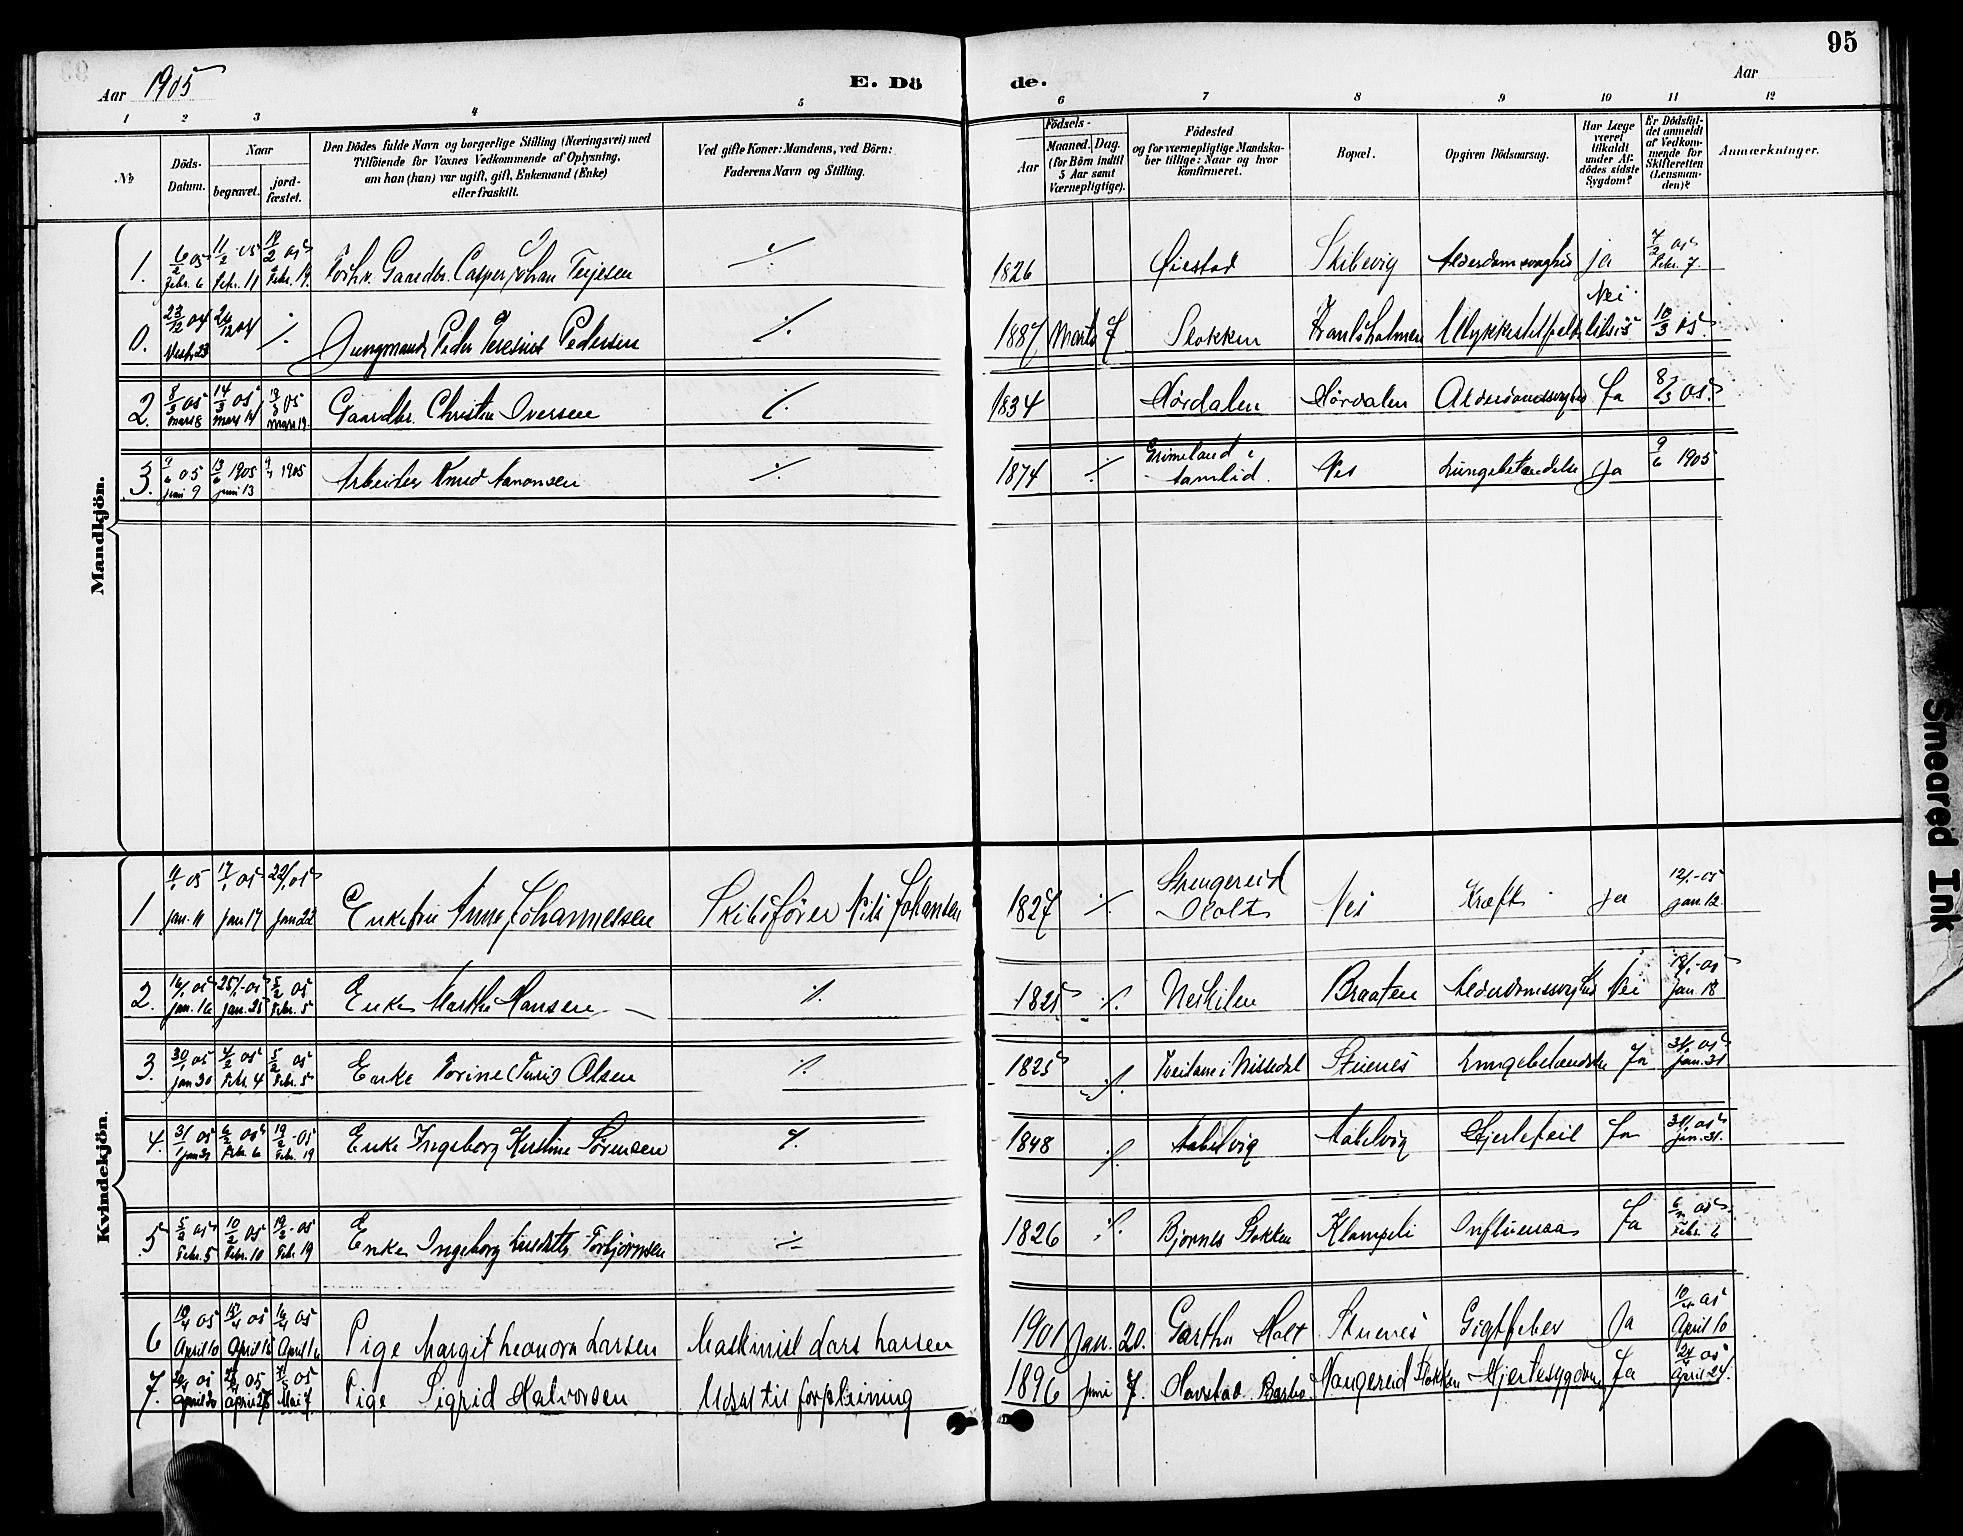 95
Aar 1905
E. Dö
de.
Aar
1 2 3 4 5 6 7 8 9 10 11 12
№
Döds-
Datum.
Naar
begravet.
jord-
fæstet.
Den Dödes fulde Navn og borgerlige Stilling (Næringsvei) med
Tilföiende for Voxnes Vedkommende af Oplysning,
om han (hun) var ugift, gift, Enkemand (Enke)
eller fraskilt.
Ved gifte Koner: Mandens, ved Börn:
Faderens Navn og Stilling.
Aar
Födsels-
Maaned. Dag.
(for Börn indtil
5 Aar samt
Værnepligtige).
Födested
og for værnepligtige Mandska-
ber tillige: Naar og hvor
konfirmeret.
Bopæl.
Opgiven Dödsaarsag.
Har Læge
været
tilkaldt
under Af-
dödes sidste
Sygdom?
Er Dödsfal-
det anmeldt
af Vedkom-
mende for
Skifteretten
(Lensman-
den)?
Anmærkninger.
Mandkjön.
1. 6/2 05 11/2 05 19/2 05
Febr. 6 Febr. 11 Febr. 19. Gaardbr. Casper Johan Terjesen ./. 1826 Øiestad Skibevig Alderdomssvaghed ja 7/2 05 Febr. 7.
0. 23/12 04 04 ./. Jungmand Peder Pedersen ./. 1887 Marts 7 Stokken Ulykkestilfælde Nei 10/3 05.
2. 8/3 05 14/3 05 19/3 05
mars 8 mars 14 mars 19. Gaardbr. Christen Iversen ./. 1834 Mørdalen Mørdalen Alderdomssvaghed Ja 8/3 05.
3. 9/6 05 13/6 1905 1905
juni 9 juni 13 Arbeider Knud Aanonsen ./. 1874 ./. Grimeland i Aamlid. Nes Lungebetændelse Ja 9/6 1905
Kvindekjön.
1 11/1 05 17/1 05 22/1 05
jan. 11 jan 17 jan 22 Enkefru Anne Johannessen Skibsfører Nils Johansen 1827 ./. Strengereid Holt Nes Kræft ja 12/1-05 jan 12.
2. 16/1 05 25/1-05 5/2 05
jan. 16 jan. 25 Febr. 5 Enke Marthe Hansen ./. 1825 ./. Neskilen Braaten Alderdomssvaghed Nei 18/1-05 Jan. 18
3. 30/1 05 4/2 05 5/2 05
jan 30 Febr. 4 Febr. 5 Enke Torine Olsen ./. 1825 ./. Stuenes Lungebetændelse Ja 31/1 05 jan. 31
4. 31/1 05 6/2 05 19/2-05
jan 31 Febr. 6 Febr. 19 Enke Ingeborg Kirstine Sørensen ./. 1848 ./. Aakelvig Aakelvig Hjertefeil Ja 31/1 05 Jan. 31.
5 5/2 05 10/2 05 19/2-05
Febr. 5 Febr. 10 Febr. 19 Enke Ingeborg Torbjørnsen ./. 1826 ./. Bjornes Stokken Klompeli Influensa Ja 6/2 05 Febr. 6
6 10/4 05 15/4 05 16/4 05
April 10 April 15 April 16 Pige Margit Leonora Larsen Maskinist Lars Larsen 1901 Jan. 20. Gartha Holt Stuenes Gigtfeber Ja 10/4 05 April 10
7. 20/4 05 05 7/5 05
April 20 April Mai 7. Pige Sigrid Halvorsen Udsat til forpleining 1896 Juni 7. Havstad Barbo Mangereid Stokken Hjertesygdom Ja 24/4 05 April 24.
Smeared Ink